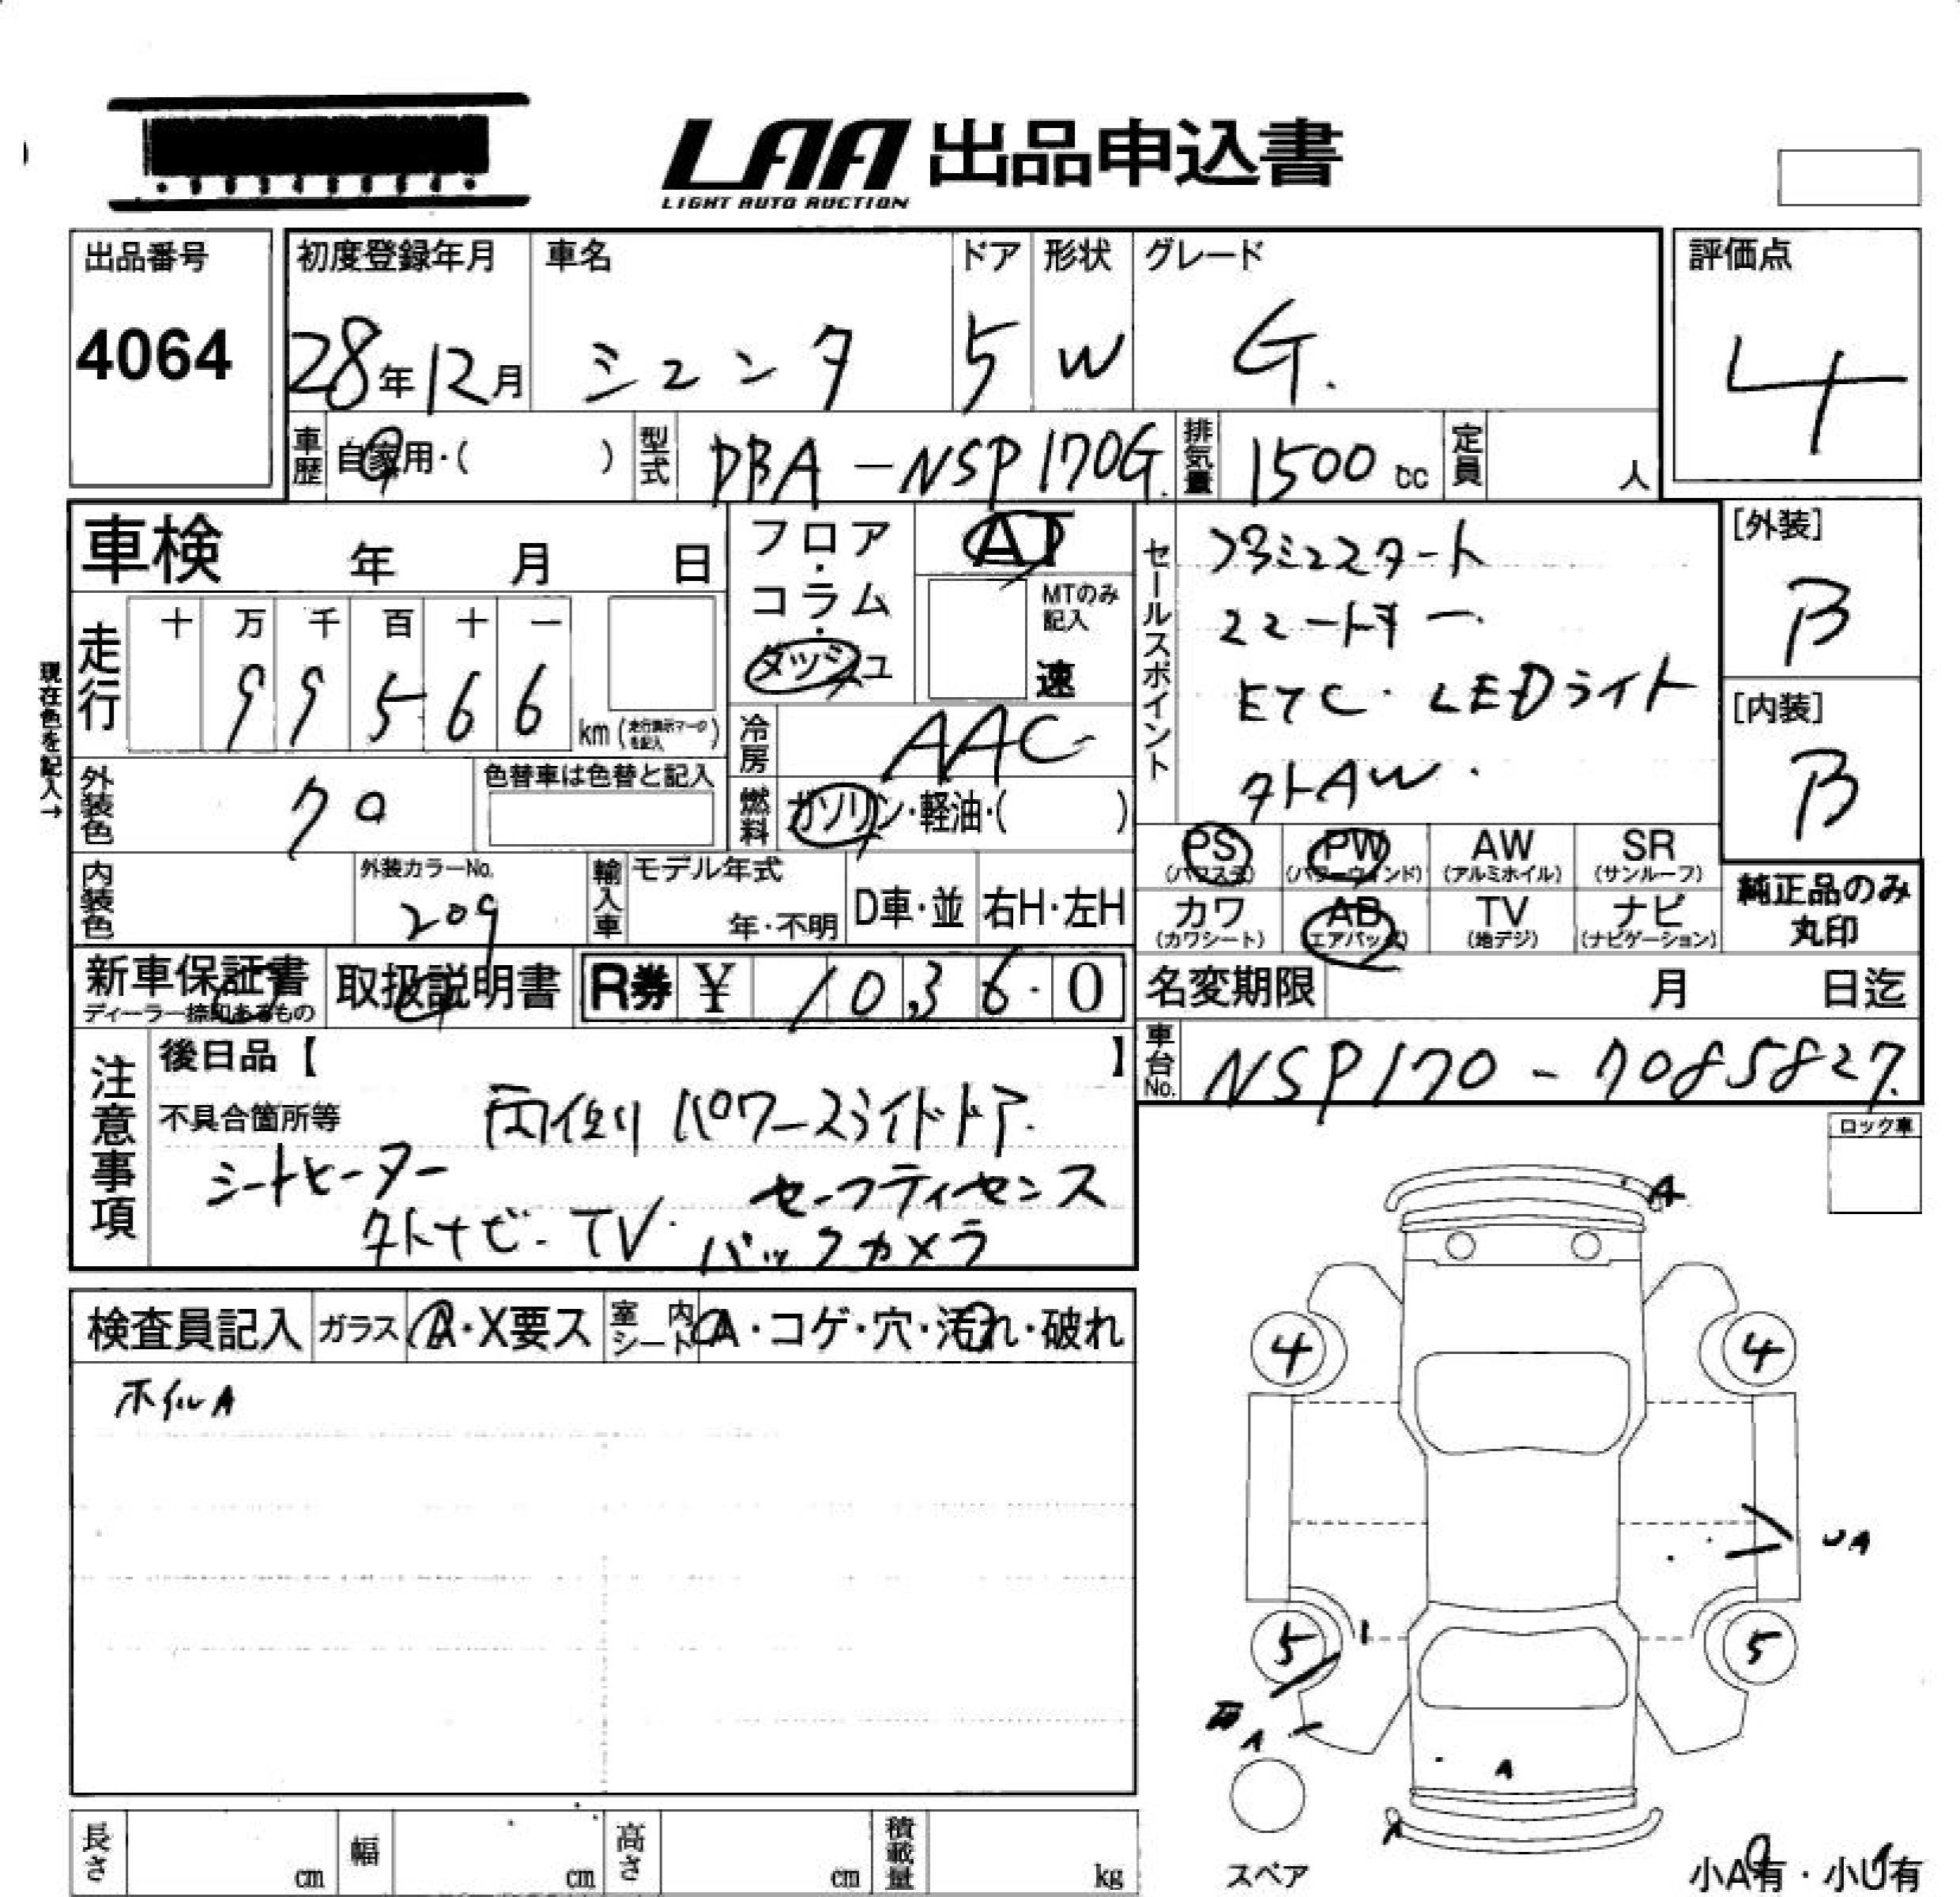 LAA 出品申込書
LIGHT AUTO AUCTION
出品番号
4064
初度登録年月
28年12月
車名
シエンタ
ドア
5
形状
W
グレード
G.
評価点
4
車歴
自家用・( )
型式
DBA-NSP170G
排気量
1500cc
定員
人
車検 年 月 日
フロア・コラム・ダッシュ
AT
MTのみ記入
速
走行
十 万 千 百 十 一
9 9 5 6 6
km(走行表示マークを記入)
現在色を記入→
冷房
AAC
外装色
クロ
色替車は色替と記入
燃料
ガソリン・軽油・( )
内装色
外装カラーNo.
209
輸入車
モデル年式
年・不明
D車・並
右H・左H
セールスポイント
スマートキー
ETC・LEDライト
外AW・
[外装]
B
[内装]
B
PS
(パワステ)
PW
(パワーウィンド)
AW
(アルミホイル)
SR
(サンルーフ)
カワ
(カワシート)
AB
(エアバッグ)
TV
(地デジ)
ナビ
(ナビゲーション)
純正品のみ丸印
新車保証書
ディーラー捺印あるもの
取扱説明書
R券 ¥ 10,36・0
名変期限 月 日迄
車台No.
NSP170-7085827.
注意事項
後日品【 】
不具合箇所等
両側パワースライドドア.
シートヒーター
セーフティセンス
外ナビ-TV.
バックカメラ
ロック車
検査員記入
ガラス
A・X要ス
室内シート
A・コゲ・穴・汚れ・破れ
ホイルA
A
4
4
UA
5
5
A
A
スペア
小A有・小U有
長さ
cm
幅
cm
高さ
cm
積載量
kg